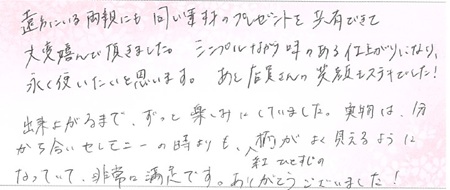 遠方にいる両親にも同い素材のプレゼントを共有できて
大変喜んで頂きました。シンプルながら味のある仕上がりになり、
永く使いたいと思います。あと店員さんの笑顔もステキでした!
出来上がるまで、ずっと楽しみにしていました。実物は、分
かち合いセレモニーの時よりも、紅ひとすじの
柄がよく見えるように
なっていて、非常に満足です。ありがとうございました!